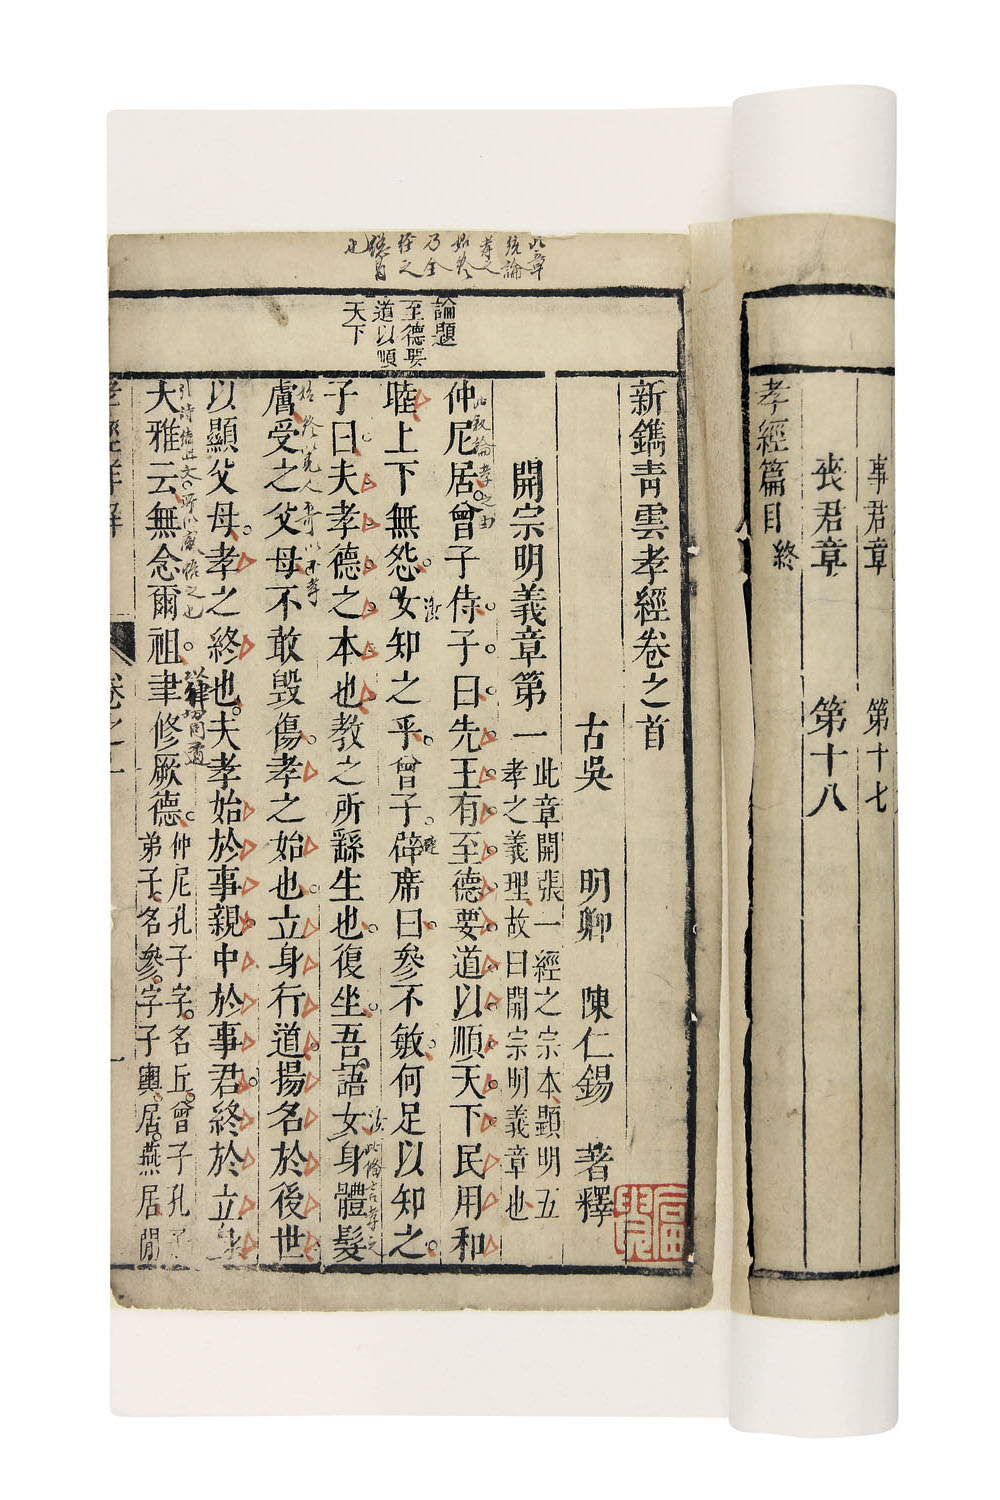 事君章　第十七
喪君章　第十八
孝經篇目終
新鐫青雲孝經卷之首
古吳　明卿　陳仁錫　著釋
開宗明義章第一
此章開張一經之宗本顯明五
孝之義理故曰開宗明義章也
仲尼居曾子侍子曰先王有至德要道以順天下民用和
睦上下無怨女知之乎曾子辟席曰參不敏何足以知之
子曰夫孝德之本也教之所繇生也復坐吾語女身體髮
膚受之父母不敢毀傷孝之始也立身行道揚名於後世
以顯父母孝之終也夫孝始於事親中於事君終於立身
大雅云無念爾祖聿修厥德
仲尼孔子字名丘曾子孔子
弟子名參字子輿居燕居閒
論題
至德要
道以順
天下
此章
統論
孝之
始終
乃全
經之
總目
也
此叙論孝之由
汝
避
汝
此條言孝之
始終以見人不可以不孝
卷之一
一